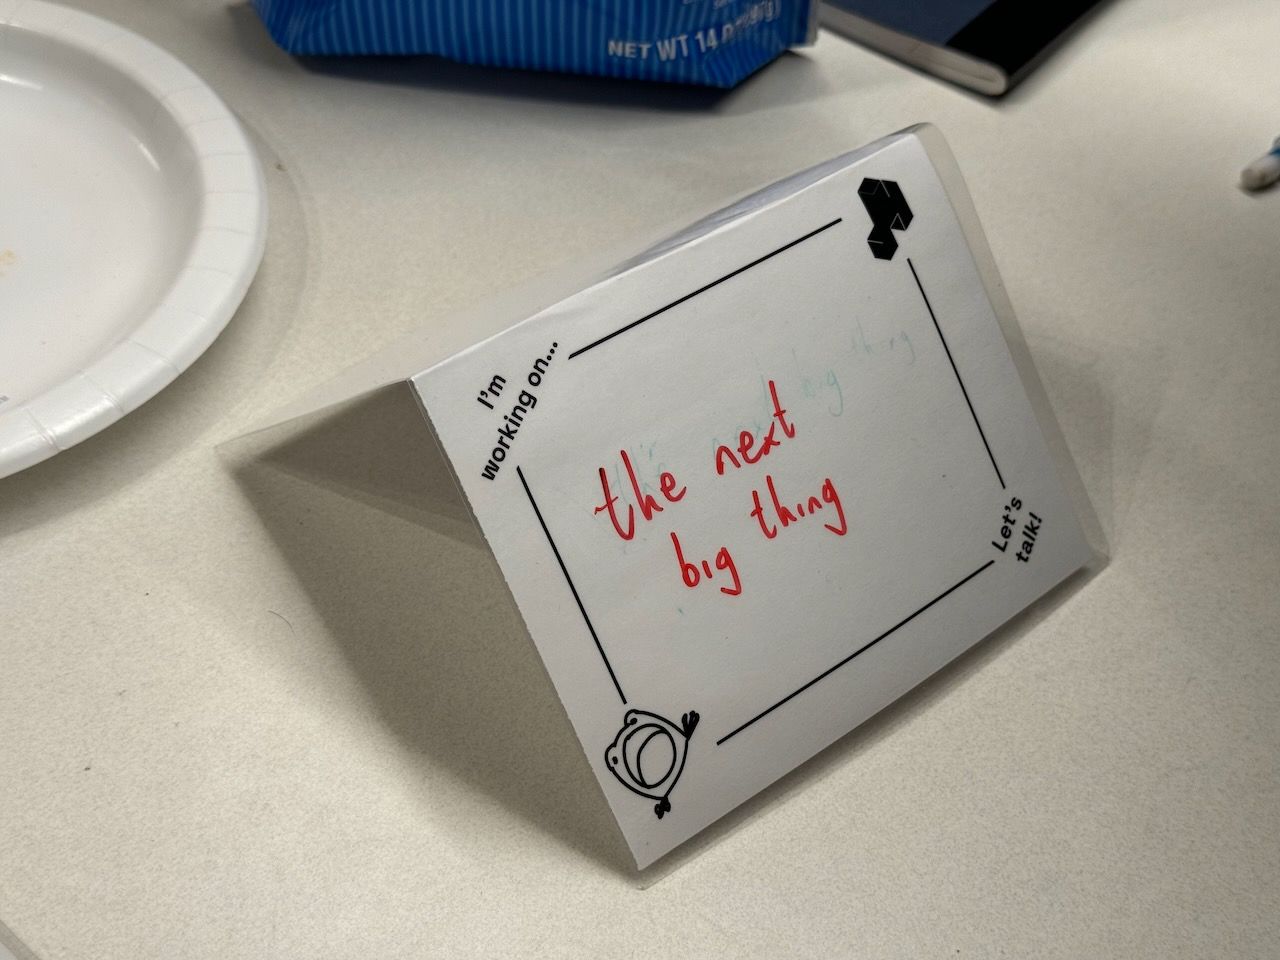 NET WT 14
I'm
working on...
the next
big thing
Let's
talk!